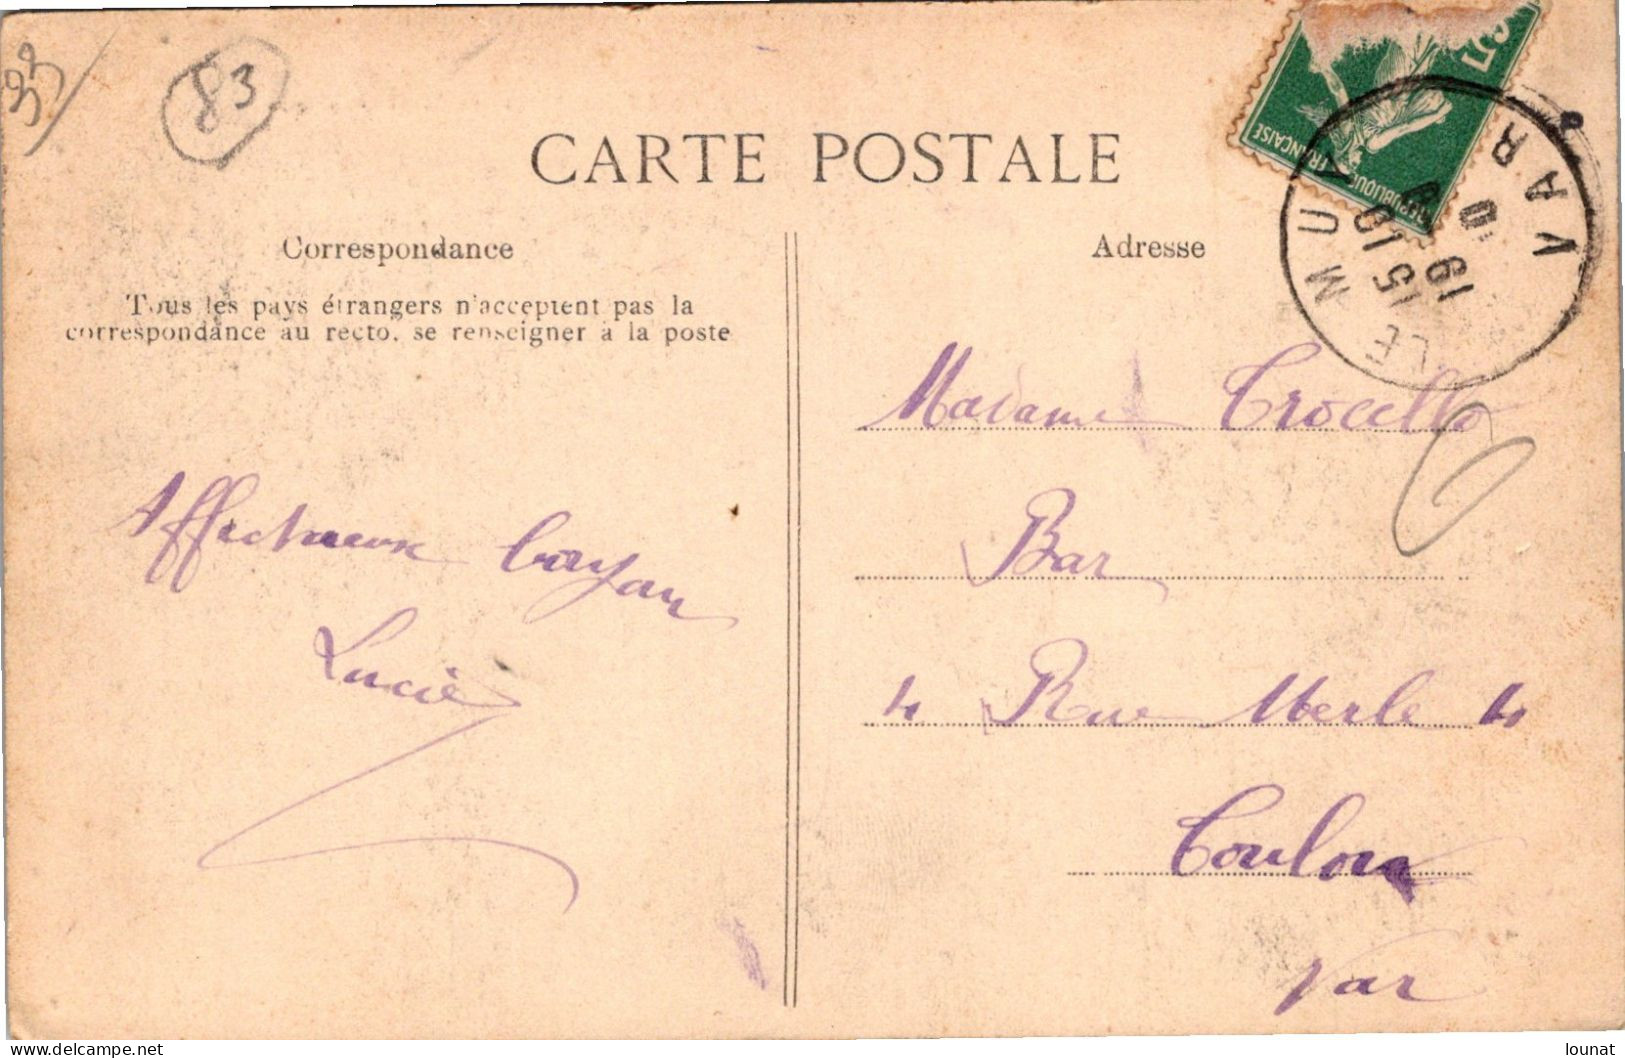 33
83
CARTE POSTALE
5c
REPUBLIQUE FRANÇAISE
LE MUY
VAR
15 10
19 10
Correspondance
Adresse
Tous les pays étrangers n'acceptent pas la
correspondance au recto, se renseigner à la poste
Madame Crocello
Affectueux
Bar
Lucie
4 Rue Merle 4
Toulon
Var
lounat